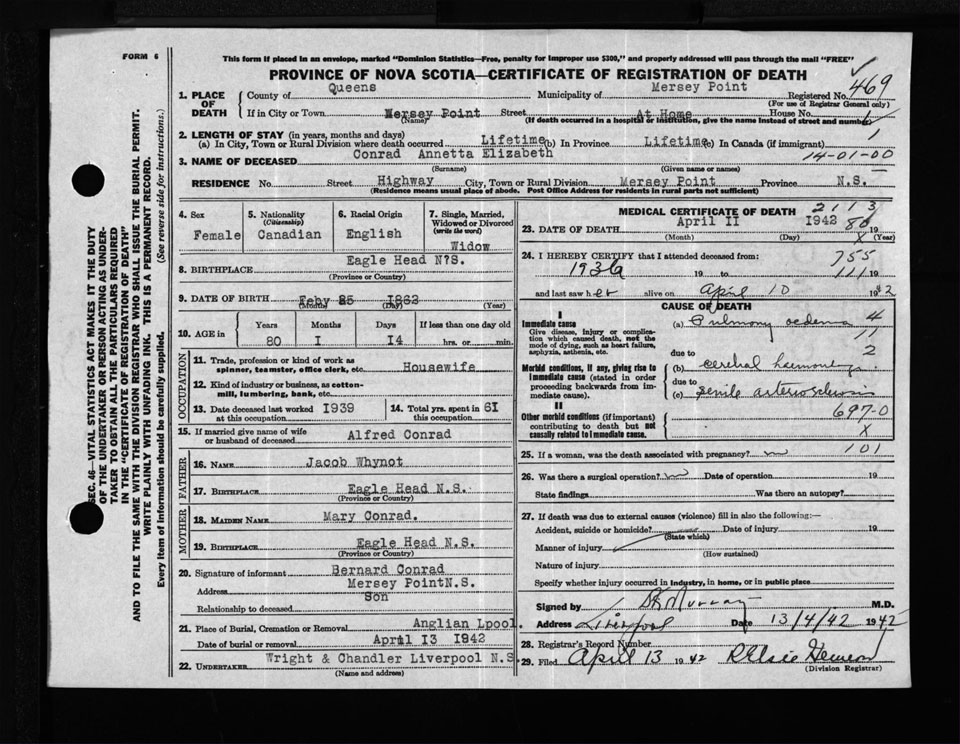 FORM 6
This form if placed in an envelope, marked "Dominion Statistics—Free, penalty for improper use $300," and properly addressed will pass through the mail "FREE"
PROVINCE OF NOVA SCOTIA—CERTIFICATE OF REGISTRATION OF DEATH
1. PLACE OF DEATH
County of Queens Municipality of Mersey Point Registered No. 469
(For use of Registrar General only)
If in City or Town Mersey Point Street At Home House No.
(Name) (If death occurred in a hospital or institution, give the name instead of street and number)
2. LENGTH OF STAY (in years, months and days)
(a) In City, Town or Rural Division where death occurred Lifetime (b) In Province Lifetime (c) In Canada (if immigrant) 1
3. NAME OF DECEASED Conrad Annetta Elizabeth 14-01-00
(Surname) (Given name or names)
RESIDENCE No. Street Highway City, Town or Rural Division Mersey Point Province N.S.
(Residence means usual place of abode. Post Office Address for residents in rural parts not sufficient)
SEC. 46—VITAL STATISTICS ACT MAKES IT THE DUTY
OF THE UNDERTAKER OR PERSON ACTING AS UNDER-
TAKER TO OBTAIN ALL THE PARTICULARS REQUIRED
IN THE "CERTIFICATE OF REGISTRATION OF DEATH"
AND TO FILE THE SAME WITH THE DIVISION REGISTRAR WHO SHALL ISSUE THE BURIAL PERMIT.
WRITE PLAINLY WITH UNFADING INK. THIS IS A PERMANENT RECORD.
Every item of information should be carefully supplied. (See reverse side for instructions.)
4. Sex Female
5. Nationality (Citizenship) Canadian
6. Racial Origin English
7. Single, Married, Widowed or Divorced (write the word) Widow
8. BIRTHPLACE Eagle Head N?S.
(Province or Country)
9. DATE OF BIRTH Feby 25 1862
(Month) (Day) (Year)
10. AGE in Years Months Days If less than one day old
80 I I4 hrs. or min.
OCCUPATION
11. Trade, profession or kind of work as spinner, teamster, office clerk, etc. Housewife
12. Kind of industry or business, as cotton-mill, lumbering, bank, etc.
13. Date deceased last worked at this occupation I939
14. Total yrs. spent in this occupation 6I
15. If married give name of wife or husband of deceased Alfred Conrad
FATHER
16. NAME Jacob Whynot
17. BIRTHPLACE Eagle Head N.S.
(Province or Country)
MOTHER
18. MAIDEN NAME Mary Conrad.
19. BIRTHPLACE Eagle Head N.S.
(Province or Country)
20. Signature of informant Bernard Conrad
Address Mersey PointN.S.
Relationship to deceased Son
21. Place of Burial, Cremation or Removal Anglian Lpool.
Date of burial or removal April I3 I942
22. UNDERTAKER Wright & Chandler Liverpool N.S.
(Name and address)
MEDICAL CERTIFICATE OF DEATH 2113
23. DATE OF DEATH April II 1942 80 19
(Month) (Day) X (Year)
24. I HEREBY CERTIFY that I attended deceased from: 755
1936 19 to 111 19
and last saw her alive on April 10 1942
CAUSE OF DEATH
I
Immediate cause
Give disease, injury or complica-
tion which caused death, not the
mode of dying, such as heart failure,
asphyxia, asthenia, etc.
(a) Pulmony oedema 4
11
due to 2
Morbid conditions, if any, giving rise to
immediate cause (stated in order
proceeding backwards from im-
mediate cause).
(b)
due to
(c) Senile arteriosclerosis
II
Other morbid conditions (if important)
contributing to death but not
causally related to immediate cause.
697-0
X
25. If a woman, was the death associated with pregnancy? 101
26. Was there a surgical operation? Date of operation 19
State findings Was there an autopsy?
27. If death was due to external causes (violence) fill in also the following:—
Accident, suicide or homicide? Date of injury 19
(State which)
Manner of injury
(How sustained)
Nature of injury
Specify whether injury occurred in industry, in home, or in public place
Signed by Murray M.D.
Address Liverpool Date 13/4/42 1942
28. Registrar's Record Number
29. Filed April 13 1942
(Division Registrar)